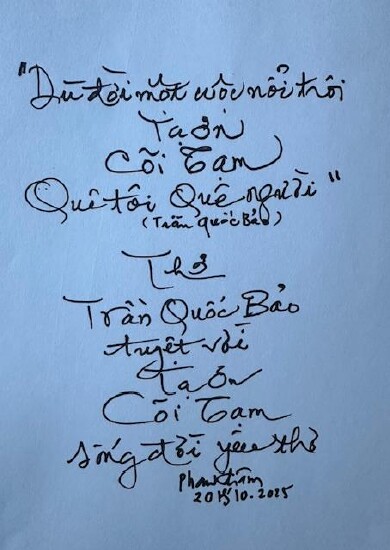 "Dù đời một cuộc nổi trôi
Tạ ơn
Cõi Tạm
Quê tôi Quê người"
(Trần Quốc Bảo)
Thơ
Trần Quốc Bảo
tuyệt vời
Tạ ơn
Cõi Tạm
sống đời yêu thơ
20 10.2025